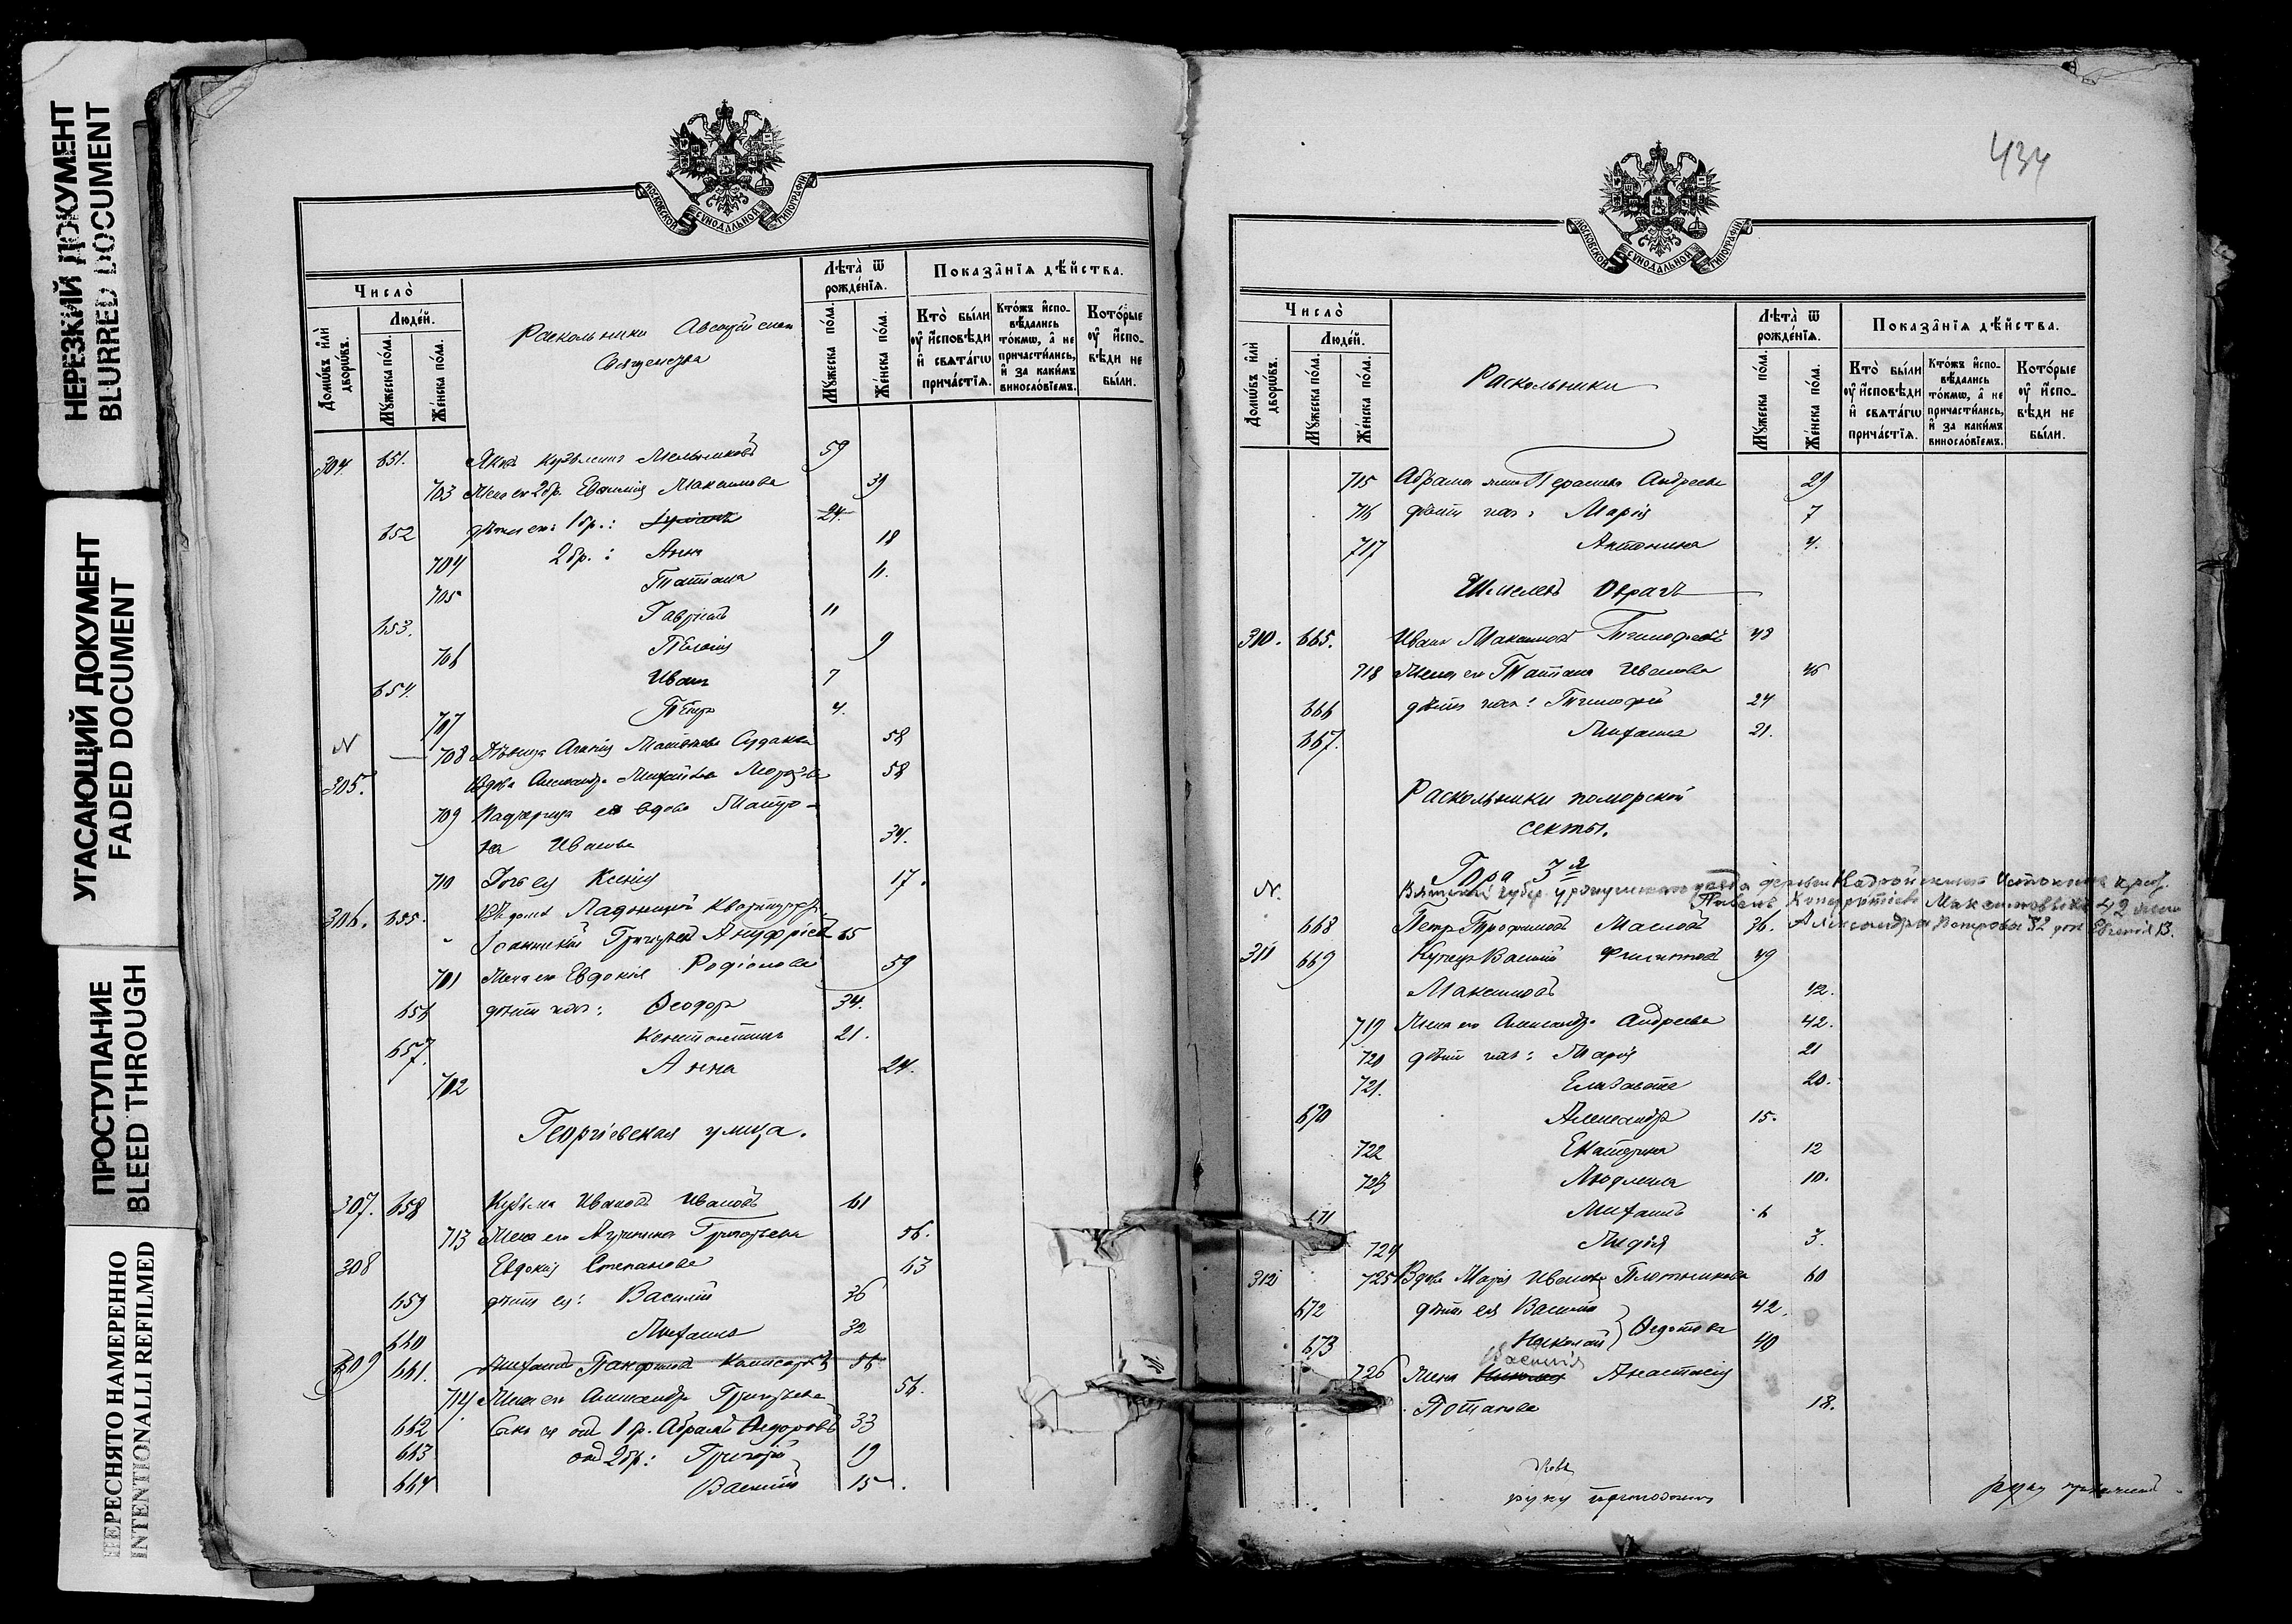 НЕРЕЗКИЙ ДОКУМЕНТ
BLURRED DOCUMENT
УГАСАЮЩИЙ ДОКУМЕНТ
FADED DOCUMENT
ПРОСТУПАНИЕ
BLEED THROUGH
ПЕРЕСНЯТО НАМЕРЕННО
INTENTIONALLI REFILMED
МОСКОВСКОЙ СУНОДАЛЬНОЙ ТИПОГРАФІИ
Число̀
Домѡ́въ и҆лѝ дворѡ́въ.
Люде́й.
Мꙋ́жеска по́ла.
Же́нска по́ла.
Раскольники Австрійскаго
Священства
Лѣ́та ѿ рожде́нїѧ.
Мꙋ́жеска по́ла.
Же́нска по́ла.
Показа̑нїѧ дѣ́йства.
Кто̀ бы́ли ᲂу҆ и҆сповѣди и҆ свѧта́гѡ прича́стїѧ.
Кто́жъ и҆спо-вѣдались то́кмѡ, а҆ не причасти́лись, и҆ за каки́мъ винослóвїемъ.
Кото́рые ᲂу҆ и҆спо-вѣди не бы́ли.
304. 651. Яковъ Кузьминъ Мельниковъ 59
703 Жена ег. 2 бр. Евфимія Максимова 39
652 дѣти ею: 1 бр.: 24.
704 2 бр.: Анна 18
705 Татіана 11.
653. Гавріилъ 11
706 Пелагія 9
654. Иванъ 7
707 Петръ 4.
N 708 Дѣвица Агапія Матвѣева 58
305. Вдова Александра Михайлова 58
709 ея вдова Матро-
на Иванова 34.
710 Дочь ея Ксенія 17.
306. 655. Въ домѣ
Іоанникій Григорьевъ Ануфріевъ 65
701 Жена ег Евдокія Родіонова 59
656 дѣти ихъ: Ѳеодоръ 34.
657. Константинъ 21.
702 Анна 24.
Георгіевская улица.
307. 658 Кузьма Ивановъ Ивановъ 61
713 Жена его Григорьева 56.
308 Евдокія Степанова 63
659 дѣти ея: Василій 36
660 Михаилъ 32
309 661. Михаилъ Панфиловъ 56
714 Жена ег Александра Григорьева 56.
662 Сынъ ея отъ 1 бр. Абрамъ Ѳедоровъ 33
663 отъ 2 бр.: Григорій 19
664 Василій 15.
434
МОСКОВСКОЙ СУНОДАЛЬНОЙ ТИПОГРАФІИ
Число̀
Домѡ́въ и҆лѝ дворѡ́въ.
Люде́й.
Мꙋ́жеска по́ла.
Же́нска по́ла.
Раскольники
Лѣ́та ѿ рожде́нїѧ.
Мꙋ́жеска по́ла.
Же́нска по́ла.
Показа̑нїѧ дѣ́йства.
Кто̀ бы́ли ᲂу҆ и҆сповѣди и҆ свѧта́гѡ прича́стїѧ.
Кто́жъ и҆спо-вѣдались то́кмѡ, а҆ не причасти́лись, и҆ за каки́мъ винослóвїемъ.
Кото́рые ᲂу҆ и҆спо-вѣди не бы́ли.
715 Абрама жена Андреева 29
716 дѣти ихъ: Марія 7
717 Антонина 4.
Шмелевъ Оврагъ
310. 665. Иванъ Максимовъ Тимофеевъ 43
718 Жена ег Татіана Иванова 45
666 дѣти ихъ: Тимофей 24
667. Михаилъ 21.
Раскольники поморской
секты.
Гора 3я
N. Вятской губер уржумскаго уезда деревни
Максимовыхъ 42 жена
668 Петръ Трофимовъ Масловъ 36. Александра Петрова 32 доч Евгенія 13.
311 669 Купецъ Василій Филиповъ 49
Максимовъ 42.
719 Жена его Александра Андреева 42.
720 дѣти ихъ: Марія 21
721. Елизавета 20.
670 Александръ 15.
722 Екатерина 12
723 Людмила 10.
671 Михаилъ 6
724 Лидія 3.
312 725 Вдова Марія Иванова Плотникова 60
672 дѣти ея Василій 42.
673 Николай Ѳедотова 40
Василія
726 Жена Анастасія
Потапова 18.
руку приложилъ
руку приложилъ